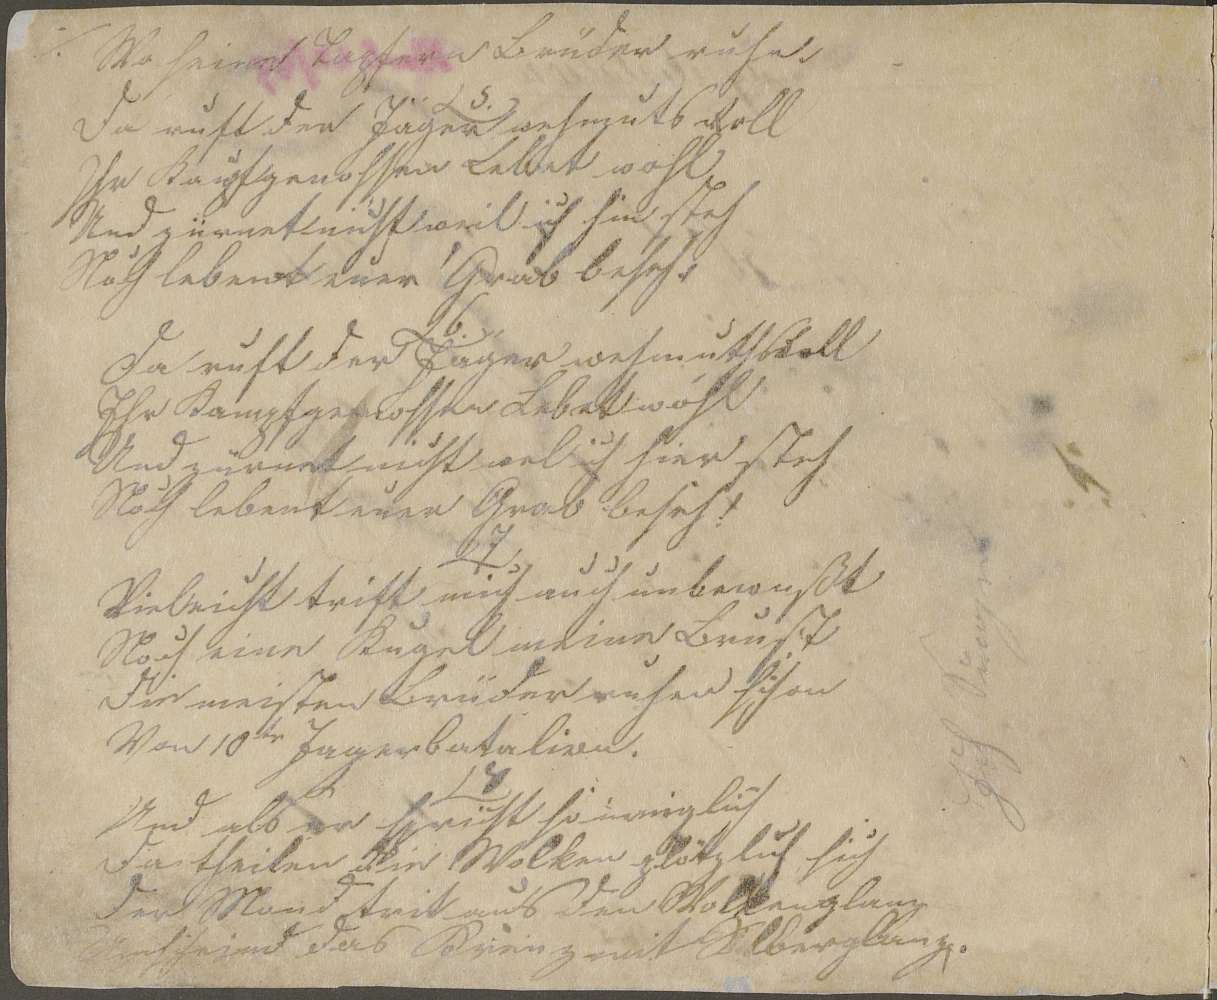 Wo seine Tapfern Brüder ruhn.
5.
Da ruft der Jäger wehmuts voll
Ihr Kampfgenossen Lebet wohl
Und zürnet nicht weil ich hir steh
Noch lebent euer Grab beseh!
6.
Da ruft der Jäger wehmuthsvoll
Ihr Kampfgenossen Lebet wohl
Und zürnet nicht wel ich hier steh
Noch lebent euer Grab beseh!
7.
Vieleicht trift mich auch unbewußt
Noch eine Kugel meine Brust
Die meisten Brüder ruhen schon
Von 10te Jagerbatalion.
8
Und als er spricht so inniglich
Da theilen die Wolken plötzlich sich
Der Mond trit aus den Wolkenglanz
das Kreuz mit Silberglanz.